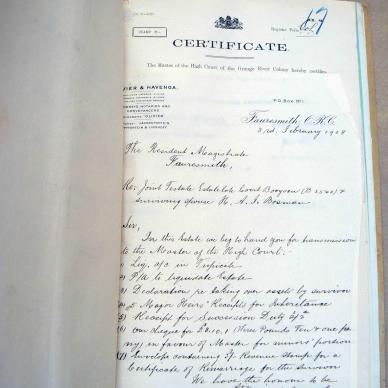 STAMP
Register Folio
17
CERTIFICATE.
The Master of the High Court of the Orange River Colony hereby certifies
& HAVENGA,
P.O. Box
NOTARIES AND
CONVEYANCERS
OLIVIER
Fauresmith, O.R.C.
3rd. February 1908
The Resident Magistrate
Fauresmith,
Re: Joint Testate Estate late Booysen &
surviving spouse H. A. S. Bosman
Sir,
In this Estate we beg to hand you for transmission
to the Master of the High Court:-
Liq. a/c in Triplicate
P/a to Liquidate Estate
Declaration re taking over assets by survivor
5 Major Heirs' Receipts for Inheritance
5) Receipt for Succession Duty
6) Our cheque for £10.1 (Three Pounds Ten & one pen
ny) in favour of Master for minors' portion
7) Envelope containing Revenue Stamp for a
Certificate of Remarriage for the survivor
We have the honour to be